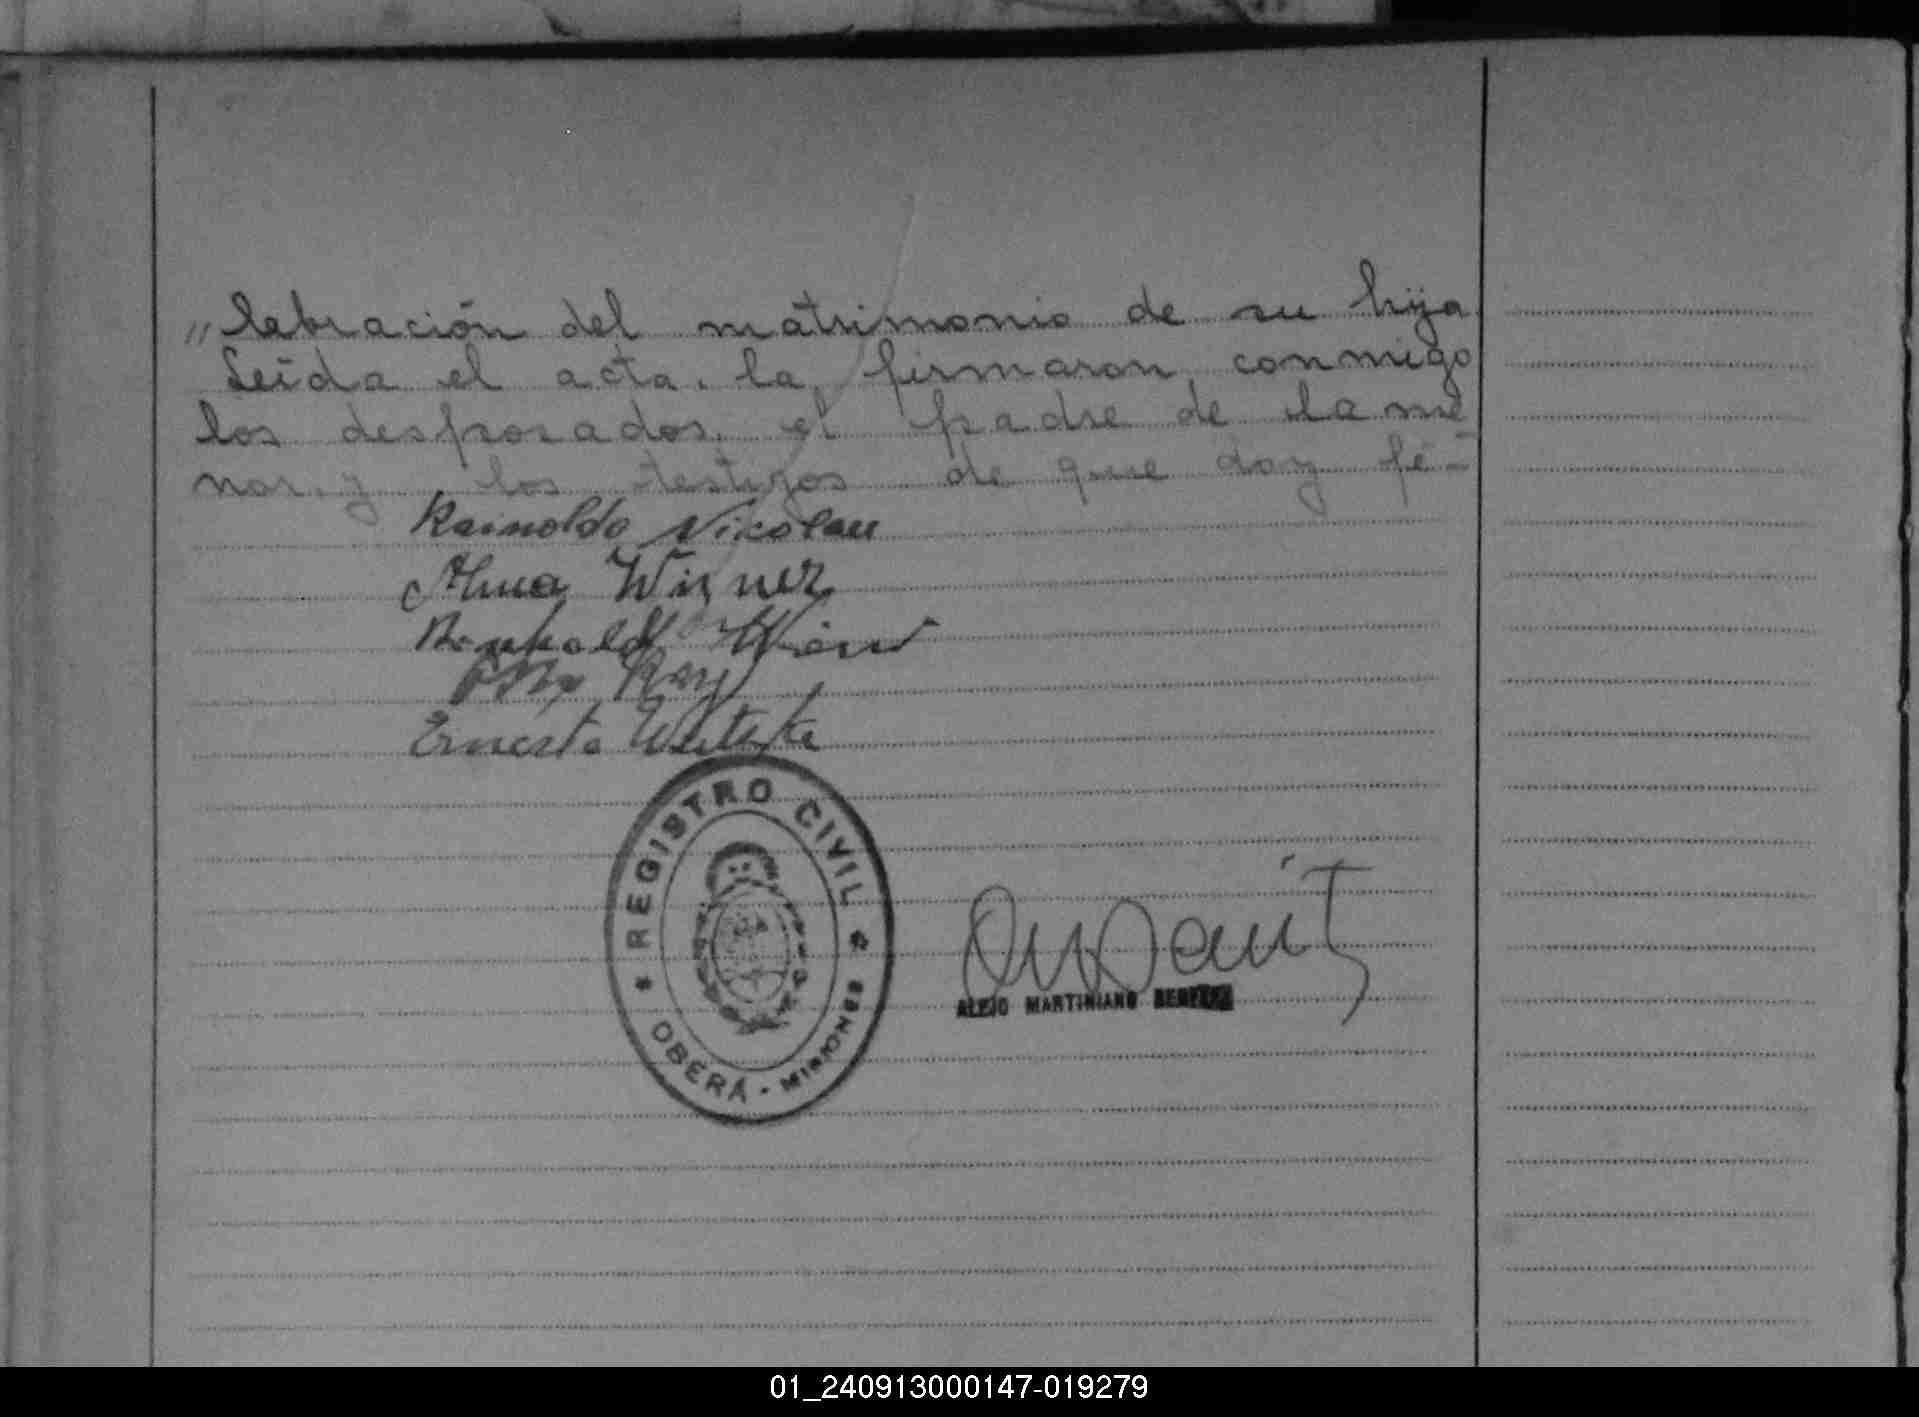 „ lebración del matrimonio de su hija.
Leída el acta, la firmaron conmigo
los desposados, el padre de la me
nor, y los testigos de que doy fé-
Rainoldo Nicolau
Alma Wizner
Ernesto
REGISTRO CIVIL
OBERÁ - MISIONES
ALEJO MARTINIANO BENITEZ
01_240913000147-019279